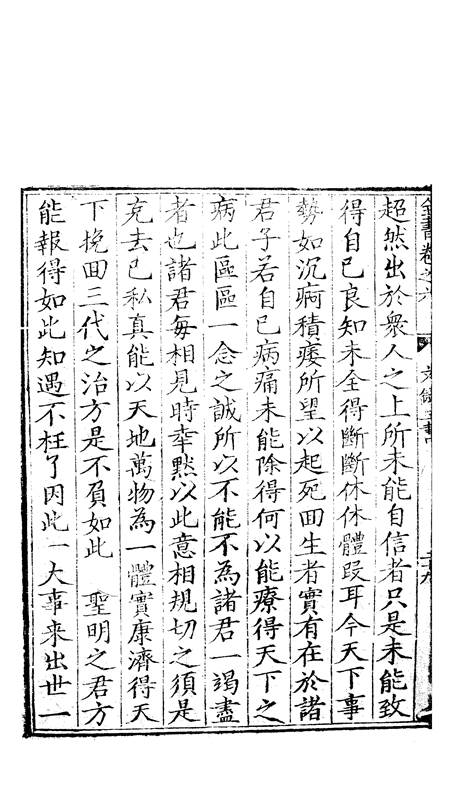 超然出於衆人之上所未能自信者只是未能致
得自己良知未全得斷斷休休體叚耳今天下事
勢如沉痾積痿所望以起死回生者實有在於諸
君子若自己病痛未能除得何以能療得天下之
病此區區一念之誠所以不能不為諸君一竭盡
者也諸君每相見時幸黙以此意相規切之須是
克去己私真能以天地萬物為一體實康濟得天
下挽回三代之治方是不負如此 聖明之君方
能報得如此知遇不枉了因此一大事来出世一